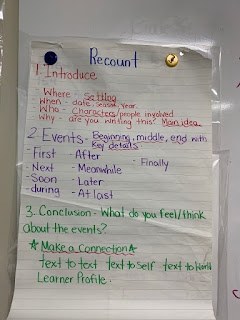 Recount
1. Introduce
Where - Setting
When - date, season, year.
Who - Characters/people involved
Why - are you writing this? Main idea
2. Events - Beginning, middle, end with
Key details
- First - After - Finally
- Next - Meanwhile
- Soon - Later
- during - At last
3. Conclusion - What do you feel/think
about the events?
★ Make a Connection ★
Text to text text to self text to World
Learner Profile